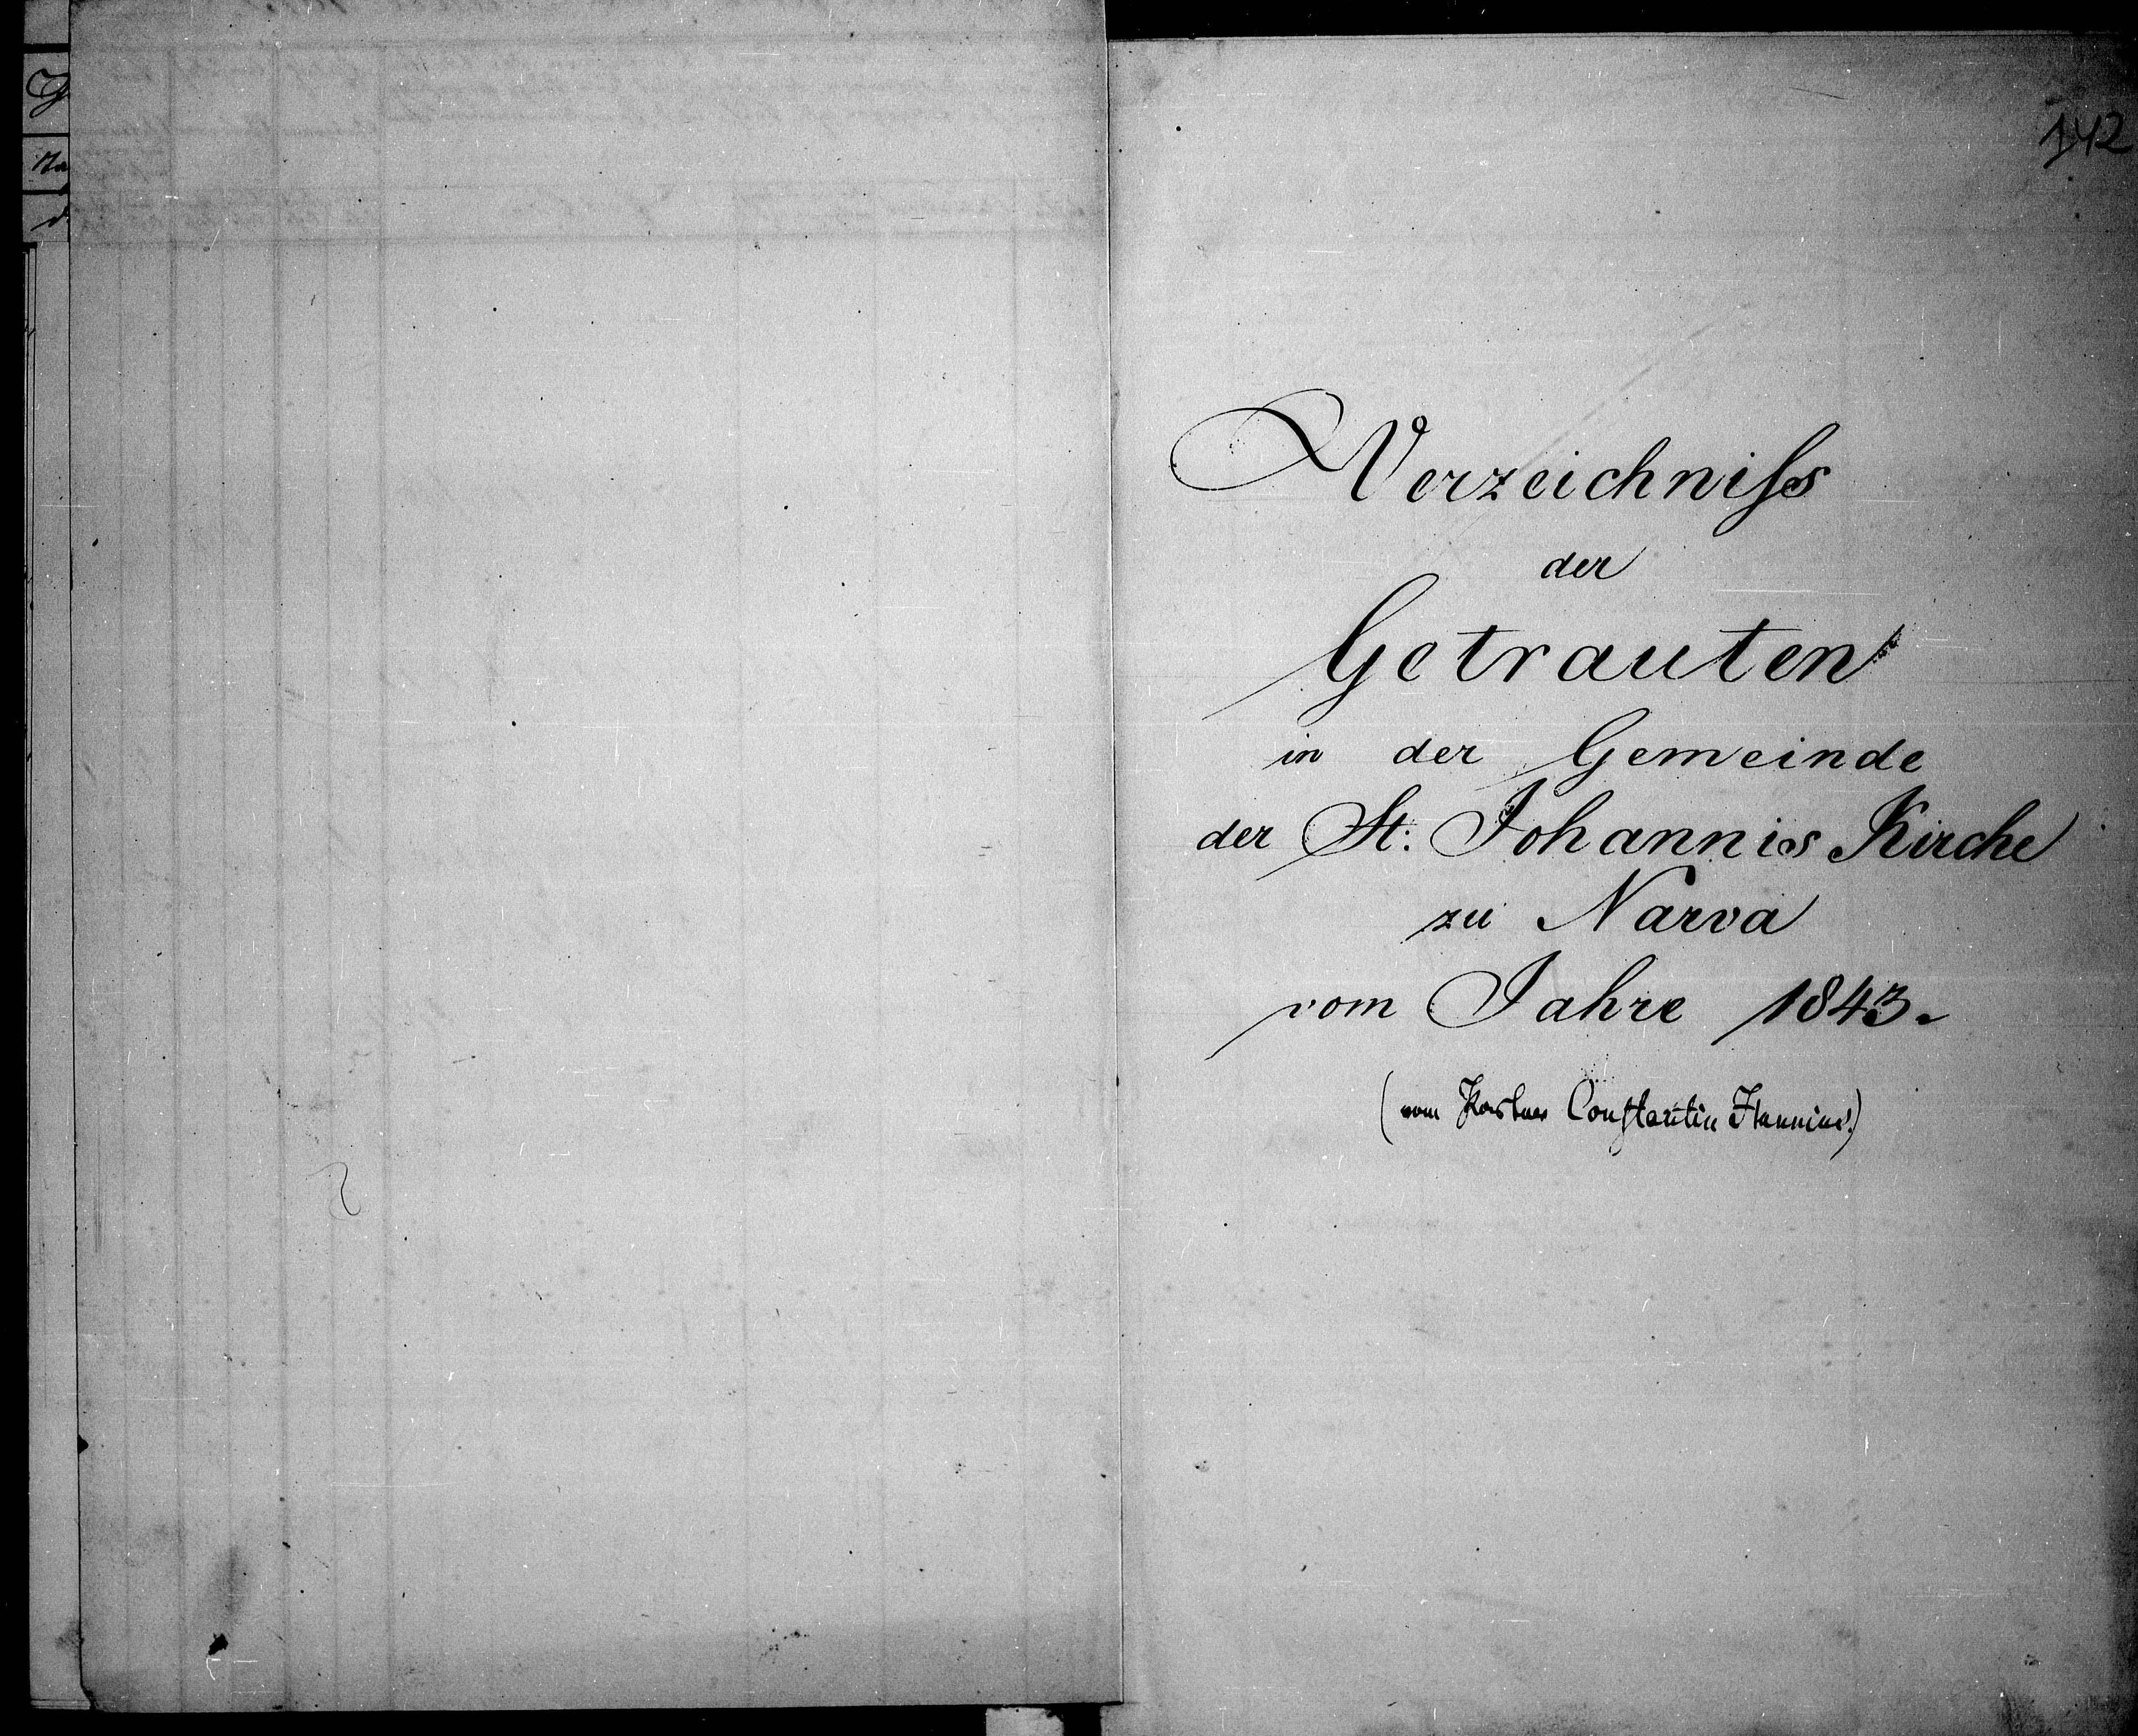 142
Verzeichniſs
der
Getrauten
in der Gemeinde
der St: Johannis Kirche
zu Narva
vom Jahre 1843.
(vom Constantin